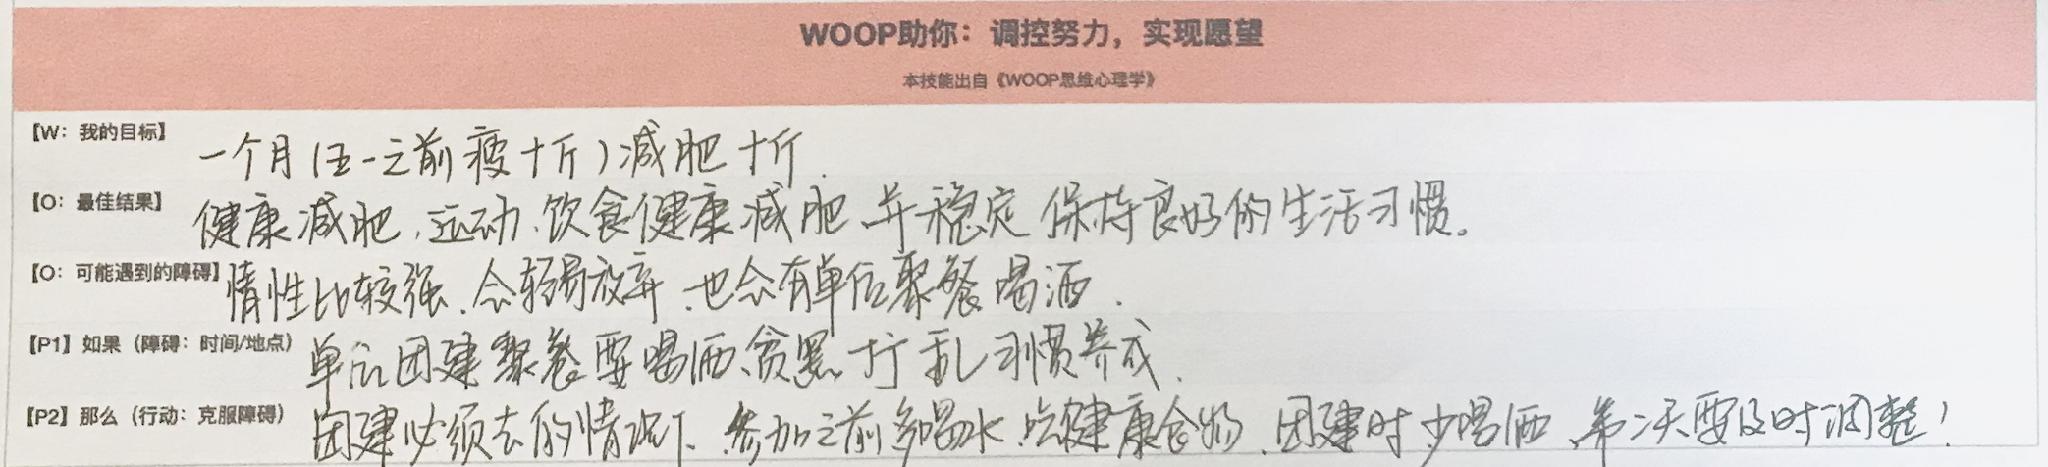 WOOP助你：调控努力，实现愿望
本技能出自《WOOP思维心理学》
【W：我的目标】 一个月（五一之前瘦十斤）减肥十斤.
【O：最佳结果】 健康减肥、运动、饮食健康减肥、并稳定保持良好的生活习惯。
【O：可能遇到的障碍】 惰性比较强、会轻易放弃、也会有单位聚餐喝酒.
【P1】如果（障碍：时间/地点） 单位团建聚餐要喝酒、打乱习惯养成.
【P2】那么（行动：克服障碍） 团建必须去的情况下、参加之前多喝水、吃健康食物、团建时少喝酒、第二天要及时调整！